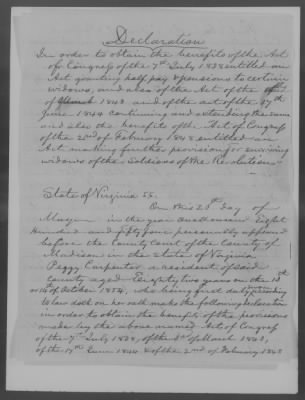 Declaration
In order to obtain the benefits of the Act
of Congress of the 7th July 1838 entitled an
Act granting half pay & pensions to certain
widows, and also of the Act of the
of March 1843 and of the act of the 17th
June 1844 continuing and extending the same
and also the benefits of the Act of Congress
of the 2nd of February 1848 entitled an
Act making further provision for surviving
widows of the Soldiers of the Revolution
State of Virginia SS.
On this 25th day of
in the year one thousand Eight
Hundred and fifty four personally appeared
before the County Court of the County of
Madison in the State of Virginia
Peggy Carpenter a resident of said
County aged Ninety two years on the 13th
or 14th of October 1854, who being first duly sworn according
to law doth on her oath make the following declaration
in order to obtain the benefit of the provisions
made by the above named Act of Congress
of the 7th July 1838, of the 3rd of March 1843,
of the 17th June 1844 & of the 2nd of February 1848